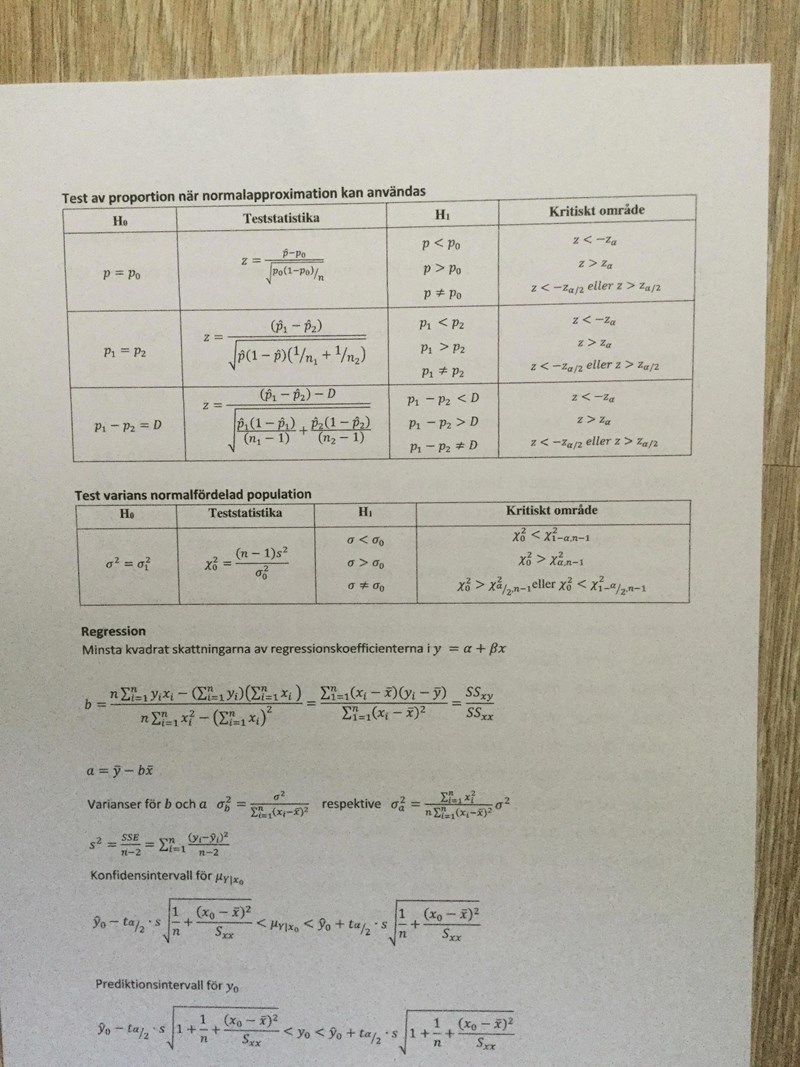 Test av proportion när normalapproximation kan användas
H₀ Teststatistika H₁ Kritiskt område
p = p₀ z = (p̂−p₀) / √(p₀(1−p₀)/n) p < p₀ z < −z_α
p > p₀ z > z_α
p ≠ p₀ z < −z_α/2 eller z > z_α/2
p₁ = p₂ z = (p̂₁ − p̂₂) / √(p̂(1 − p̂)(1/n₁ + 1/n₂)) p₁ < p₂ z < −z_α
p₁ > p₂ z > z_α
p₁ ≠ p₂ z < −z_α/2 eller z > z_α/2
p₁ − p₂ = D z = ((p̂₁ − p̂₂) − D) / √(p̂₁(1 − p̂₁)/(n₁ − 1) + p̂₂(1 − p̂₂)/(n₂ − 1)) p₁ − p₂ < D z < −z_α
p₁ − p₂ > D z > z_α
p₁ − p₂ ≠ D z < −z_α/2 eller z > z_α/2
Test varians normalfördelad population
H₀ Teststatistika H₁ Kritiskt område
σ² = σ₁² χ₀² = (n − 1)s² / σ₀² σ < σ₀ χ₀² < χ²_1−α,n−1
σ > σ₀ χ₀² > χ²_α,n−1
σ ≠ σ₀ χ₀² > χ²_α/2,n−1 eller χ₀² < χ²_1−α/2,n−1
Regression
Minsta kvadrat skattningarna av regressionskoefficienterna i y = α + βx
b = (n Σⁿᵢ₌₁ yᵢxᵢ − (Σⁿᵢ₌₁ yᵢ)(Σⁿᵢ₌₁ xᵢ)) / (n Σⁿᵢ₌₁ xᵢ² − (Σⁿᵢ₌₁ xᵢ)²) = Σⁿ₁₌₁(xᵢ − x̄)(yᵢ − ȳ) / Σⁿ₁₌₁(xᵢ − x̄)² = SS_xy / SS_xx
a = ȳ − bx̄
Varianser för b och a σ_b² = σ² / Σⁿᵢ₌₁(xᵢ−x̄)² respektive σ_a² = Σⁿᵢ₌₁ xᵢ² / (n Σⁿᵢ₌₁(xᵢ−x̄)²) σ²
s² = SSE / (n−2) = Σⁿᵢ₌₁ (yᵢ−ŷᵢ)² / (n−2)
Konfidensintervall för μ_Y|x₀
ŷ₀ − t_α/2 · s √(1/n + (x₀ − x̄)²/S_xx) < μ_Y|x₀ < ŷ₀ + t_α/2 · s √(1/n + (x₀ − x̄)²/S_xx)
Prediktionsintervall för y₀
ŷ₀ − t_α/2 · s √(1 + 1/n + (x₀ − x̄)²/S_xx) < y₀ < ŷ₀ + t_α/2 · s √(1 + 1/n + (x₀ − x̄)²/S_xx)